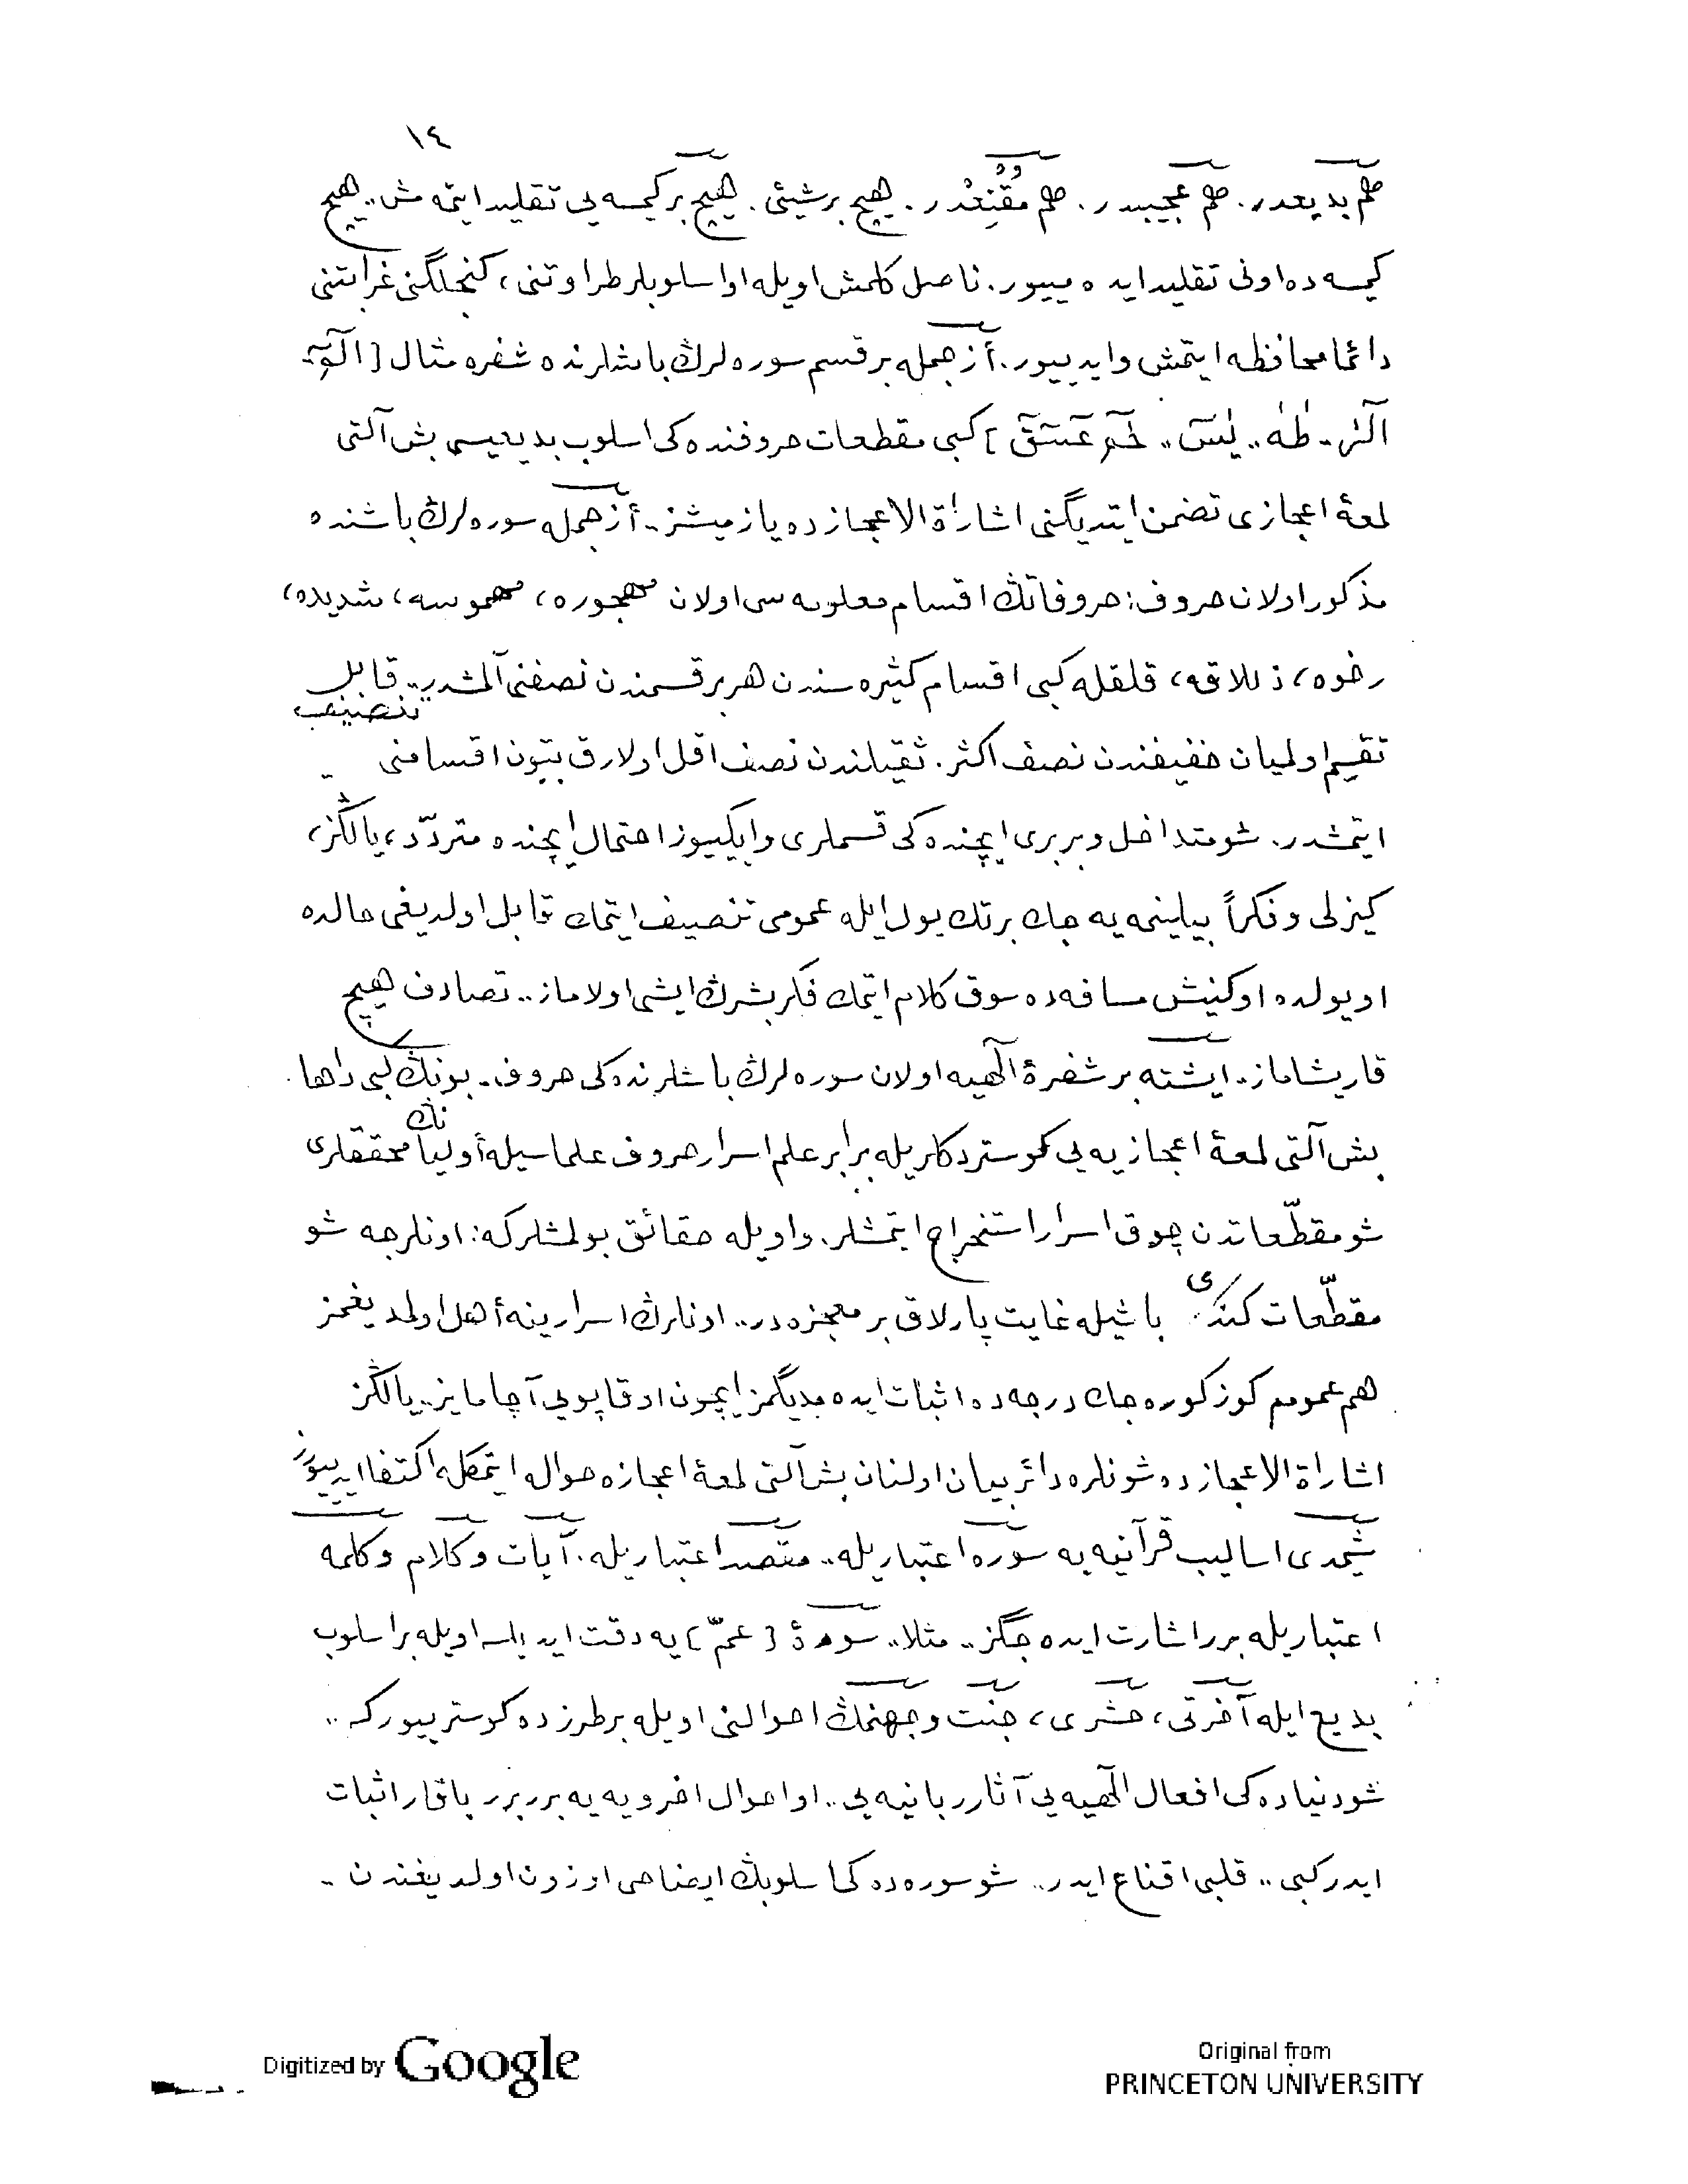 ١٤
هم بديعدر. هم عجيبدر. هم مُقْنِعْدر. هيچ برشيئى. هيچ بركيمسه يى تقليد ايتمه مش.. هيچ
كيمسه ده اونى تقليد ايده مييور. ناصل كلمش اويله او اسلوبلر طراوتنى، كنجلگنى غرابتنى
دائما محافظه ايتمش وايدييور. أزجمله برقسم سوره لرڭ باشلرنده شفره مثال [الٓمٓ..
الٓرٰ.. طٰهٰ.. يٰسٓ.. حٰمٓ عٓسٓقٓ] كبى مقطعات حروفنده كى اسلوب بديعيسى بش آلتى
لمعۀ اعجازى تضمن ايتديگنى اشاراة الاعجازده يازمیشز.. أزجمله سوره لرڭ باشنده
مذكور اولان حروف: حروفاتڭ اقسام معلومه سى اولان مهجوره، مهموسه، شديده،
رخوه، ذللاقه، قلقله كبى اقسام كثيره سندن هر برقسمندن نصفنى آلمشدر.. قابل
تقسيم اولميان خفيفندن نصف اكثر. ثقيلندن نصف اقل اولارق بتون اقسامنى تنصيف
ايتمشدر. شو متداخل وبربرى ايچنده كى قسملرى وايكييوز احتمال ايچنده متردّد، يالڭز،
كيزلى وفكراً بيلينمه يه جك برتك يول ايله عمومى تنصيف ايتمك قابل اولديغى حالده
او يولده او كنيش مسافه ده سوق كلام ايتمك فكر بشرڭ ايشى اولاماز.. تصادف هيچ
قاريشاماز.. ايشته بر شفرۀ الٓهيه اولان سوره لرڭ باشلرنده كى حروف.. بونڭ كبى داها
بش آلتى لمعۀ اعجازيه يى كوستردكلريله برابر علم اسرار حروف علماسيله أوليانڭ محققلرى
شو مقطّعاتدن چوق اسرار استخراج ايتمشلر. واويله حقائق بولمشلركه: اونلرجه شو
مقطّعات كندى باشيله غايت پارلاق بر معجزه در.. اونلرڭ اسرارينه أهل اولمديغمز
هم عموم كوز كوره جك درجه ده اثبات ايده مديگمز ايچون او قاپويى آچامايز.. يالڭز
اشاراة الاعجازده شونلره دائر بيان اولنان بش آلتى لمعۀ اعجازه حواله ايتمكله اكتفا ايدييورز
شيمدى اساليب قرآنيه يه سوره اعتباريله.. مقصد اعتباريله. آيات وكلام وكلمه
اعتباريله برر اشارت ايده جگز.. مثلا.. سورۀ [عمّ] يه دقت ايديلسه اويله بر اسلوب
بديع ايله آخرتى، حشرى، جنت وجهنمڭ احوالنى اويله برطرزده كوسترييوركه ..
شو دنياده كى افعال الٓهيه يى آثار ربانيه يى.. او احوال اخرويه يه برر برر باقار اثبات
ايدر كبى.. قلبى اقناع ايدر.. شو سوره ده كى اسلوبڭ ايضاحى اوزون اولديغندن ..
Digitized by Google
Original from
PRINCETON UNIVERSITY